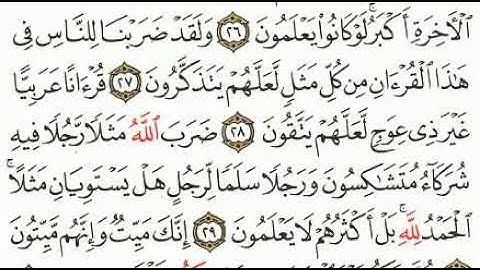 ٱلْأَخِرَةِ أَكْبَرُ ۚ لَوْ كَانُوا۟ يَعْلَمُونَ ٢٦ وَلَقَدْ ضَرَبْنَا لِلنَّاسِ فِى
هَٰذَا ٱلْقُرْءَانِ مِن كُلِّ مَثَلٍ لَّعَلَّهُمْ يَتَذَكَّرُونَ ٢٧ قُرْءَانًا عَرَبِيًّا
غَيْرَ ذِى عِوَجٍ لَّعَلَّهُمْ يَتَّقُونَ ٢٨ ضَرَبَ ٱللَّهُ مَثَلًا رَّجُلًا فِيهِ
شُرَكَآءُ مُتَشَٰكِسُونَ وَرَجُلًا سَلَمًا لِّرَجُلٍ هَلْ يَسْتَوِيَانِ مَثَلًا ۚ
ٱلْحَمْدُ لِلَّهِ ۚ بَلْ أَكْثَرُهُمْ لَا يَعْلَمُونَ ٢٩ إِنَّكَ مَيِّتٌ وَإِنَّهُم مَّيِّتُونَ